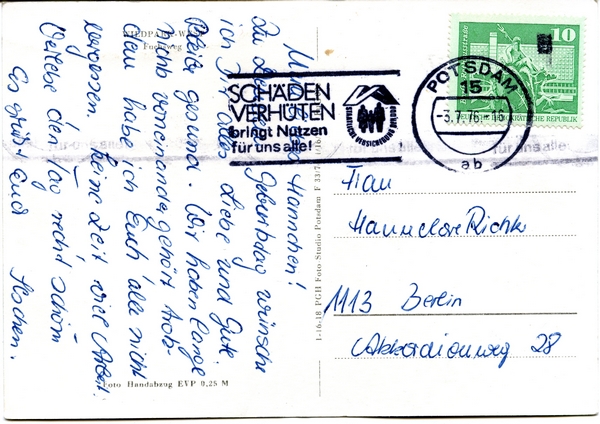 WILDPARK-WEST
Fuchsweg
Meine liebe Hannchen!
Zu Deinem Geburtstag wünsche
ich Dir alles Liebe und Gute.
Bleibe gesund. Wir haben lange
nichts voneinander gehört. Trotz-
dem habe ich Euch alle nicht
vergessen. Keine Zeit viel Arbeit.
Verlebe den Tag recht schön
Es grüßt Euch
Foto Handabzug EVP 0,25 M
1-16-18 PGH Foto Studio Potsdam F 33/
SCHÄDEN
VERHÜTEN
bringt Nutzen
für uns alle!
STAATLICHE VERSICHERUNG DER DDR
POTSDAM
15
-3.7.76.-16
ab
10
DEUTSCHE DEMOKRATISCHE REPUBLIK
für uns alle!
Frau
Hannelore Richter
1113 Berlin
Akkordionweg 28